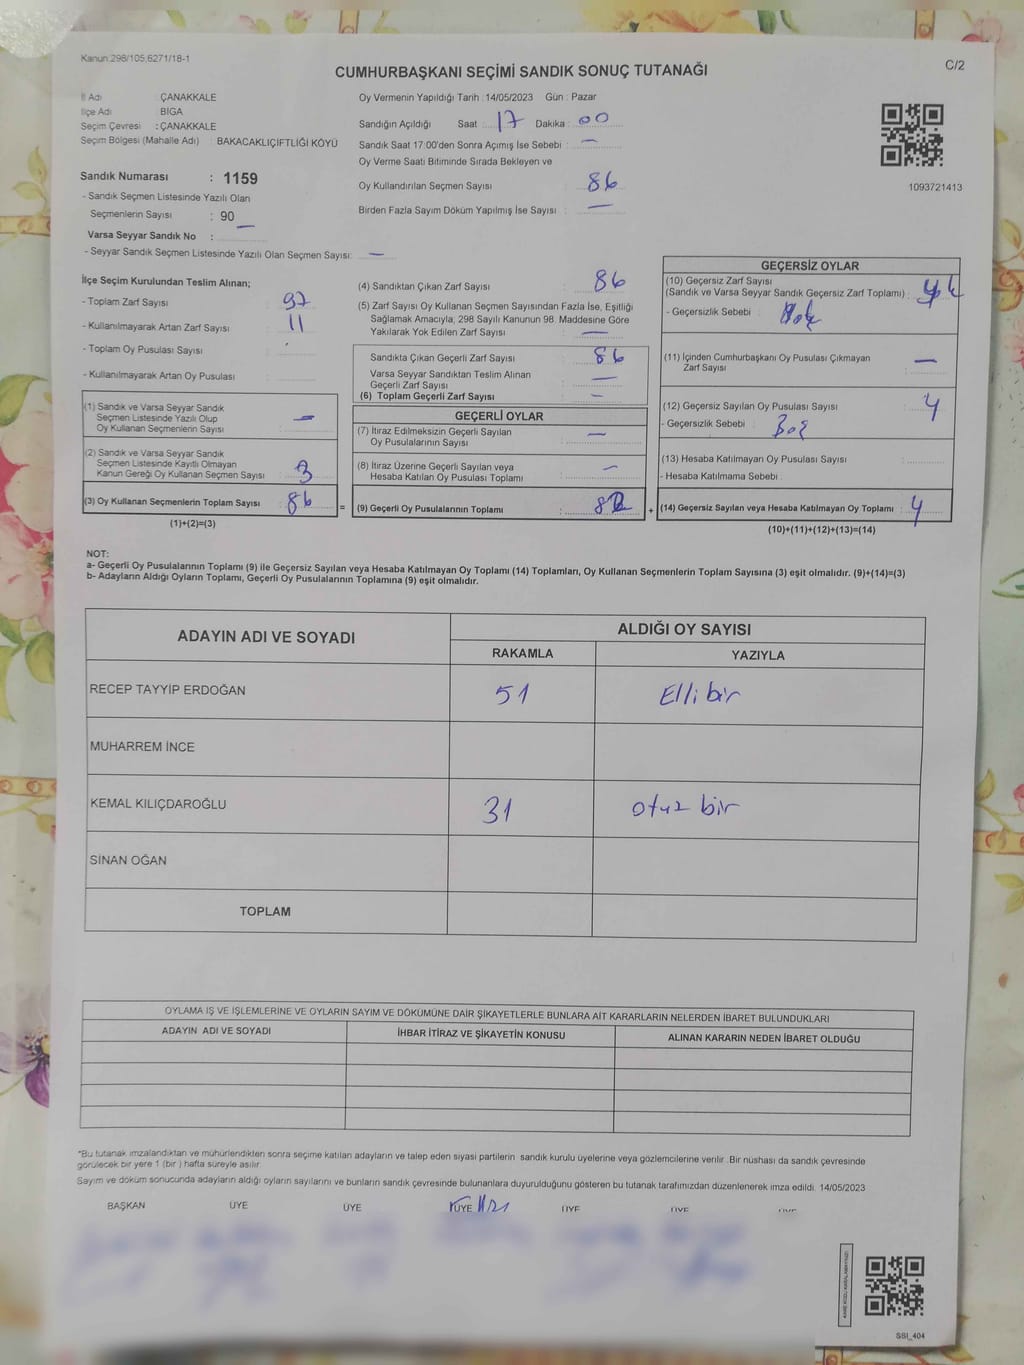 Kanun:298/105,6271/18-1
C/2
CUMHURBAŞKANI SEÇİMİ SANDIK SONUÇ TUTANAĞI
İl Adı ÇANAKKALE
İlçe Adı BİGA
Seçim Çevresi : ÇANAKKALE
Seçim Bölgesi (Mahalle Adı) : BAKACAKLIÇİFTLİĞİ KÖYÜ
Sandık Numarası : 1159
- Sandık Seçmen Listesinde Yazılı Olan
Seçmenlerin Sayısı : 90
Varsa Seyyar Sandık No : —
- Seyyar Sandık Seçmen Listesinde Yazılı Olan Seçmen Sayısı: —
Oy Vermenin Yapıldığı Tarih : 14/05/2023 Gün : Pazar
Sandığın Açıldığı Saat : 17 Dakika : 00
Sandık Saat 17:00'den Sonra Açımış İse Sebebi : —
Oy Verme Saati Bitiminde Sırada Bekleyen ve
Oy Kullandırılan Seçmen Sayısı : 86
Birden Fazla Sayım Döküm Yapılmış İse Sayısı : —
1093721413
İlçe Seçim Kurulundan Teslim Alınan;
- Toplam Zarf Sayısı : 97
- Kullanılmayarak Artan Zarf Sayısı : 11
- Toplam Oy Pusulası Sayısı :
- Kullanılmayarak Artan Oy Pusulası :
(1) Sandık ve Varsa Seyyar Sandık
Seçmen Listesinde Yazılı Olup
Oy Kullanan Seçmenlerin Sayısı : —
(2) Sandık ve Varsa Seyyar Sandık
Seçmen Listesinde Kayıtlı Olmayan
Kanun Gereği Oy Kullanan Seçmen Sayısı : 3
(3) Oy Kullanan Seçmenlerin Toplam Sayısı : 86
(1)+(2)=(3)
=
(4) Sandıktan Çıkan Zarf Sayısı : 86
(5) Zarf Sayısı Oy Kullanan Seçmen Sayısından Fazla İse, Eşitliği
Sağlamak Amacıyla, 298 Sayılı Kanunun 98. Maddesine Göre
Yakılarak Yok Edilen Zarf Sayısı : —
Sandıkta Çıkan Geçerli Zarf Sayısı : 86
Varsa Seyyar Sandıktan Teslim Alınan
Geçerli Zarf Sayısı : —
(6) Toplam Geçerli Zarf Sayısı : —
GEÇERLİ OYLAR
(7) İtiraz Edilmeksizin Geçerli Sayılan
Oy Pusulalarının Sayısı : —
(8) İtiraz Üzerine Geçerli Sayılan veya
Hesaba Katılan Oy Pusulası Toplamı : —
(9) Geçerli Oy Pusulalarının Toplamı : 82
+
GEÇERSİZ OYLAR
(10) Geçersiz Zarf Sayısı
(Sandık ve Varsa Seyyar Sandık Geçersiz Zarf Toplamı) : yok
- Geçersizlik Sebebi :
(11) İçinden Cumhurbaşkanı Oy Pusulası Çıkmayan
Zarf Sayısı : —
(12) Geçersiz Sayılan Oy Pusulası Sayısı : 4
- Geçersizlik Sebebi : Boş
(13) Hesaba Katılmayan Oy Pusulası Sayısı :
- Hesaba Katılmama Sebebi :
(14) Geçersiz Sayılan veya Hesaba Katılmayan Oy Toplamı : 4
(10)+(11)+(12)+(13)=(14)
NOT:
a- Geçerli Oy Pusulalarının Toplamı (9) ile Geçersiz Sayılan veya Hesaba Katılmayan Oy Toplamı (14) Toplamları, Oy Kullanan Seçmenlerin Toplam Sayısına (3) eşit olmalıdır. (9)+(14)=(3)
b- Adayların Aldığı Oyların Toplamı, Geçerli Oy Pusulalarının Toplamına (9) eşit olmalıdır.
ADAYIN ADI VE SOYADI
ALDIĞI OY SAYISI
RAKAMLA YAZIYLA
RECEP TAYYİP ERDOĞAN 51 Elli bir
MUHARREM İNCE
KEMAL KILIÇDAROĞLU 31 otuz bir
SİNAN OĞAN
TOPLAM
OYLAMA İŞ VE İŞLEMLERİNE VE OYLARIN SAYIM VE DÖKÜMÜNE DAİR ŞİKAYETLERLE BUNLARA AİT KARARLARIN NELERDEN İBARET BULUNDUKLARI
ADAYIN ADI VE SOYADI İHBAR İTİRAZ VE ŞİKAYETİN KONUSU ALINAN KARARIN NEDEN İBARET OLDUĞU
*Bu tutanak imzalandıktan ve mühürlendikten sonra seçime katılan adayların ve talep eden siyasi partilerin sandık kurulu üyelerine veya gözlemcilerine verilir. Bir nüshası da sandık çevresinde
görülecek bir yere 1 (bir) hafta süreyle asılır.
Sayım ve döküm sonucunda adayların aldığı oyların sayılarını ve bunların sandık çevresinde bulunanlara duyurulduğunu gösteren bu tutanak tarafımızdan düzenlenerek imza edildi. 14/05/2023
BAŞKAN ÜYE ÜYE ÜYE ÜYE ÜYE ÜYE
SSI_404